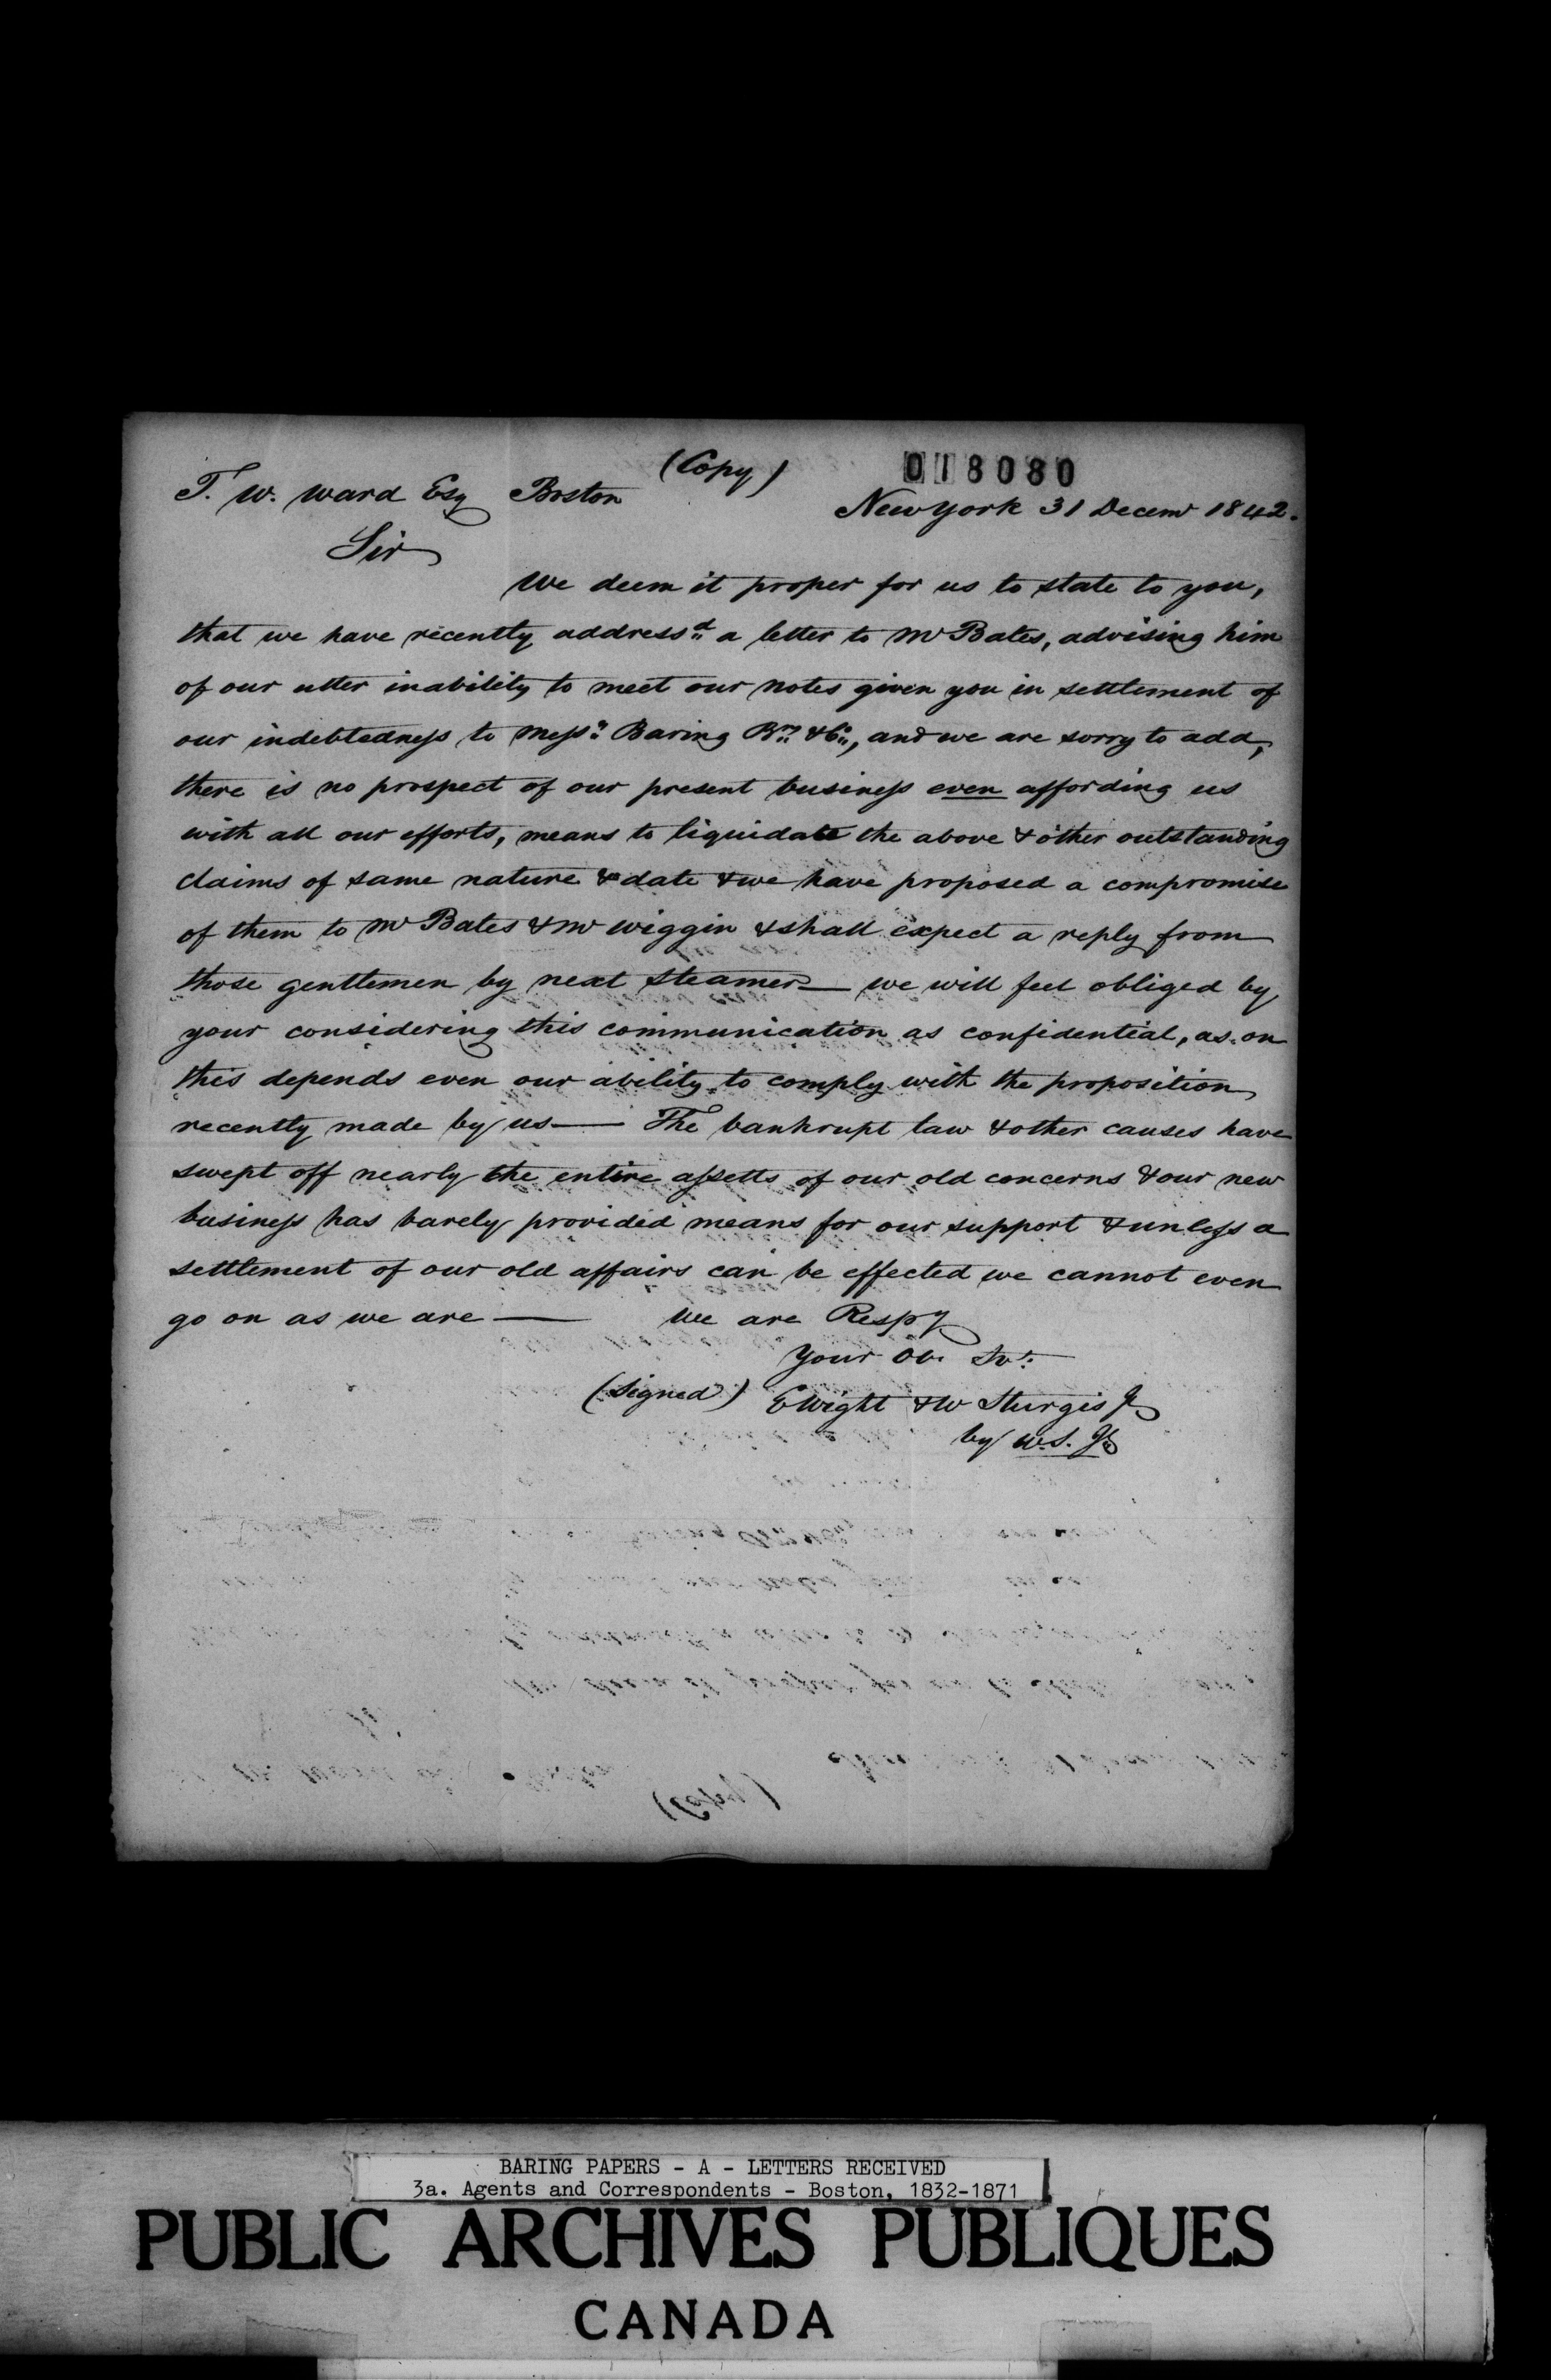 (Copy)
018080
T. W. Ward Esq Boston
New York 31 Decemr 1842.
Sir
We deem it proper for us to state to you,
that we have recently address'd a letter to Mr Bates, advising him
of our utter inability to meet our notes given you in settlement of
our indebtedness to Messrs Baring Brs & Co, and we are sorry to add,
there is no prospect of our present business even affording us
with all our efforts, means to liquidate the above & other outstanding
claims of same nature & date & we have proposed a compromise
of them to Mr Bates & Mr Wiggin & shall expect a reply from
those gentlemen by next steamer — we will feel obliged by
your considering this communication as confidential, as on
this depends even our ability to comply with the proposition
recently made by us — The bankrupt law & other causes have
swept off nearly the entire assetts of our old concerns & our new
business has barely provided means for our support & unless a
settlement of our old affairs can be effected we cannot even
go on as we are — We are Respy
Your Ob. Svt.
(Signed) E Wight & W Sturgis Jr
by W.S. Jr
BARING PAPERS - A - LETTERS RECEIVED
3a. Agents and Correspondents - Boston, 1832-1871
PUBLIC ARCHIVES PUBLIQUES
CANADA